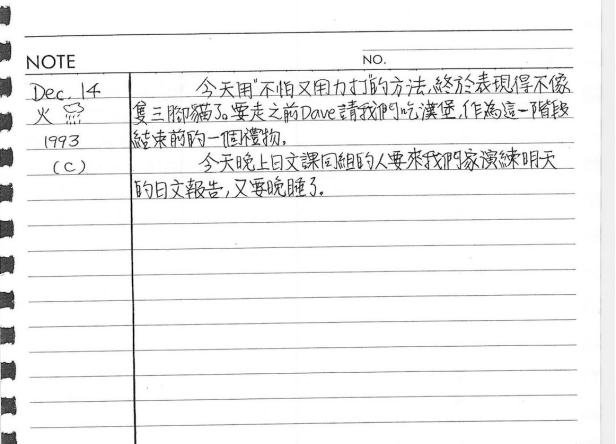 NOTE
NO.
Dec. 14
火
1993
(C)
今天用"不怕又用力打"的方法,終於表現得不像
隻三腳貓了。要走之前Dave請我們吃漢堡,作為這一階段
結束前的一個禮物。
今天晚上日文課同組的人要來我們家演練明天
的日文報告,又要晚睡了。